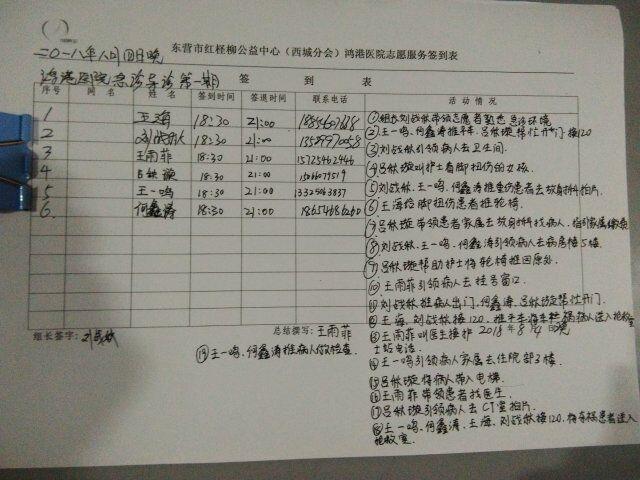 东营市红柽柳公益中心（西城分会）鸿港医院志愿服务签到表
二〇一八年八月四日晚
鸿港医院急诊导诊第一期 签 到 表
序号 网 名 姓 名 签到时间 签退时间 联系电话 活 动 情 况
1 王海 18:30 21:00
2 刘战秋 18:30 21:00
3 王雨菲 18:30 21:00 15725462946
4 吕秋璇 18:30 21:00
5 王一鸣 18:30 21:00 13325463837
6. 何鑫涛 18:30 21:00 18654686260
①组长刘战秋带领志愿者熟悉急诊环境
②王一鸣、何鑫涛推平车、吕秋璇帮忙开门接120
③刘战秋引领病人去卫生间.
④吕秋璇叫护士看脚扭伤的女孩
⑤刘战秋、王一鸣、何鑫涛推重伤患者去放射科拍片.
⑥王海给脚扭伤患者推轮椅.
⑦吕秋璇带领患者家属去放射科找病人,指引家属缴费
⑧刘战秋、王一鸣、何鑫涛引领病人去病房楼5楼.
⑨吕秋璇帮助护士将轮椅推回原处.
⑩王雨菲引领病人去挂号窗口.
⑪刘战秋推病人出门,何鑫涛、吕秋璇帮忙开门.
⑫王海、刘战秋接120,推平车将车祸病人送入抢救室
⑬王雨菲叫医生接护士站电话. 2018年8月4日晚
⑭王一鸣引领病人家属去住院部3楼.
⑮吕秋璇将病人带入电梯.
⑯王雨菲带领患者找医生.
⑰吕秋璇引领病人去CT室拍片.
⑱王一鸣、何鑫涛、王海、刘战秋接120,将车祸患者送入抢救室.
组长签字: 刘战秋
总结撰写: 王雨菲
⑲王一鸣、何鑫涛推病人做检查.